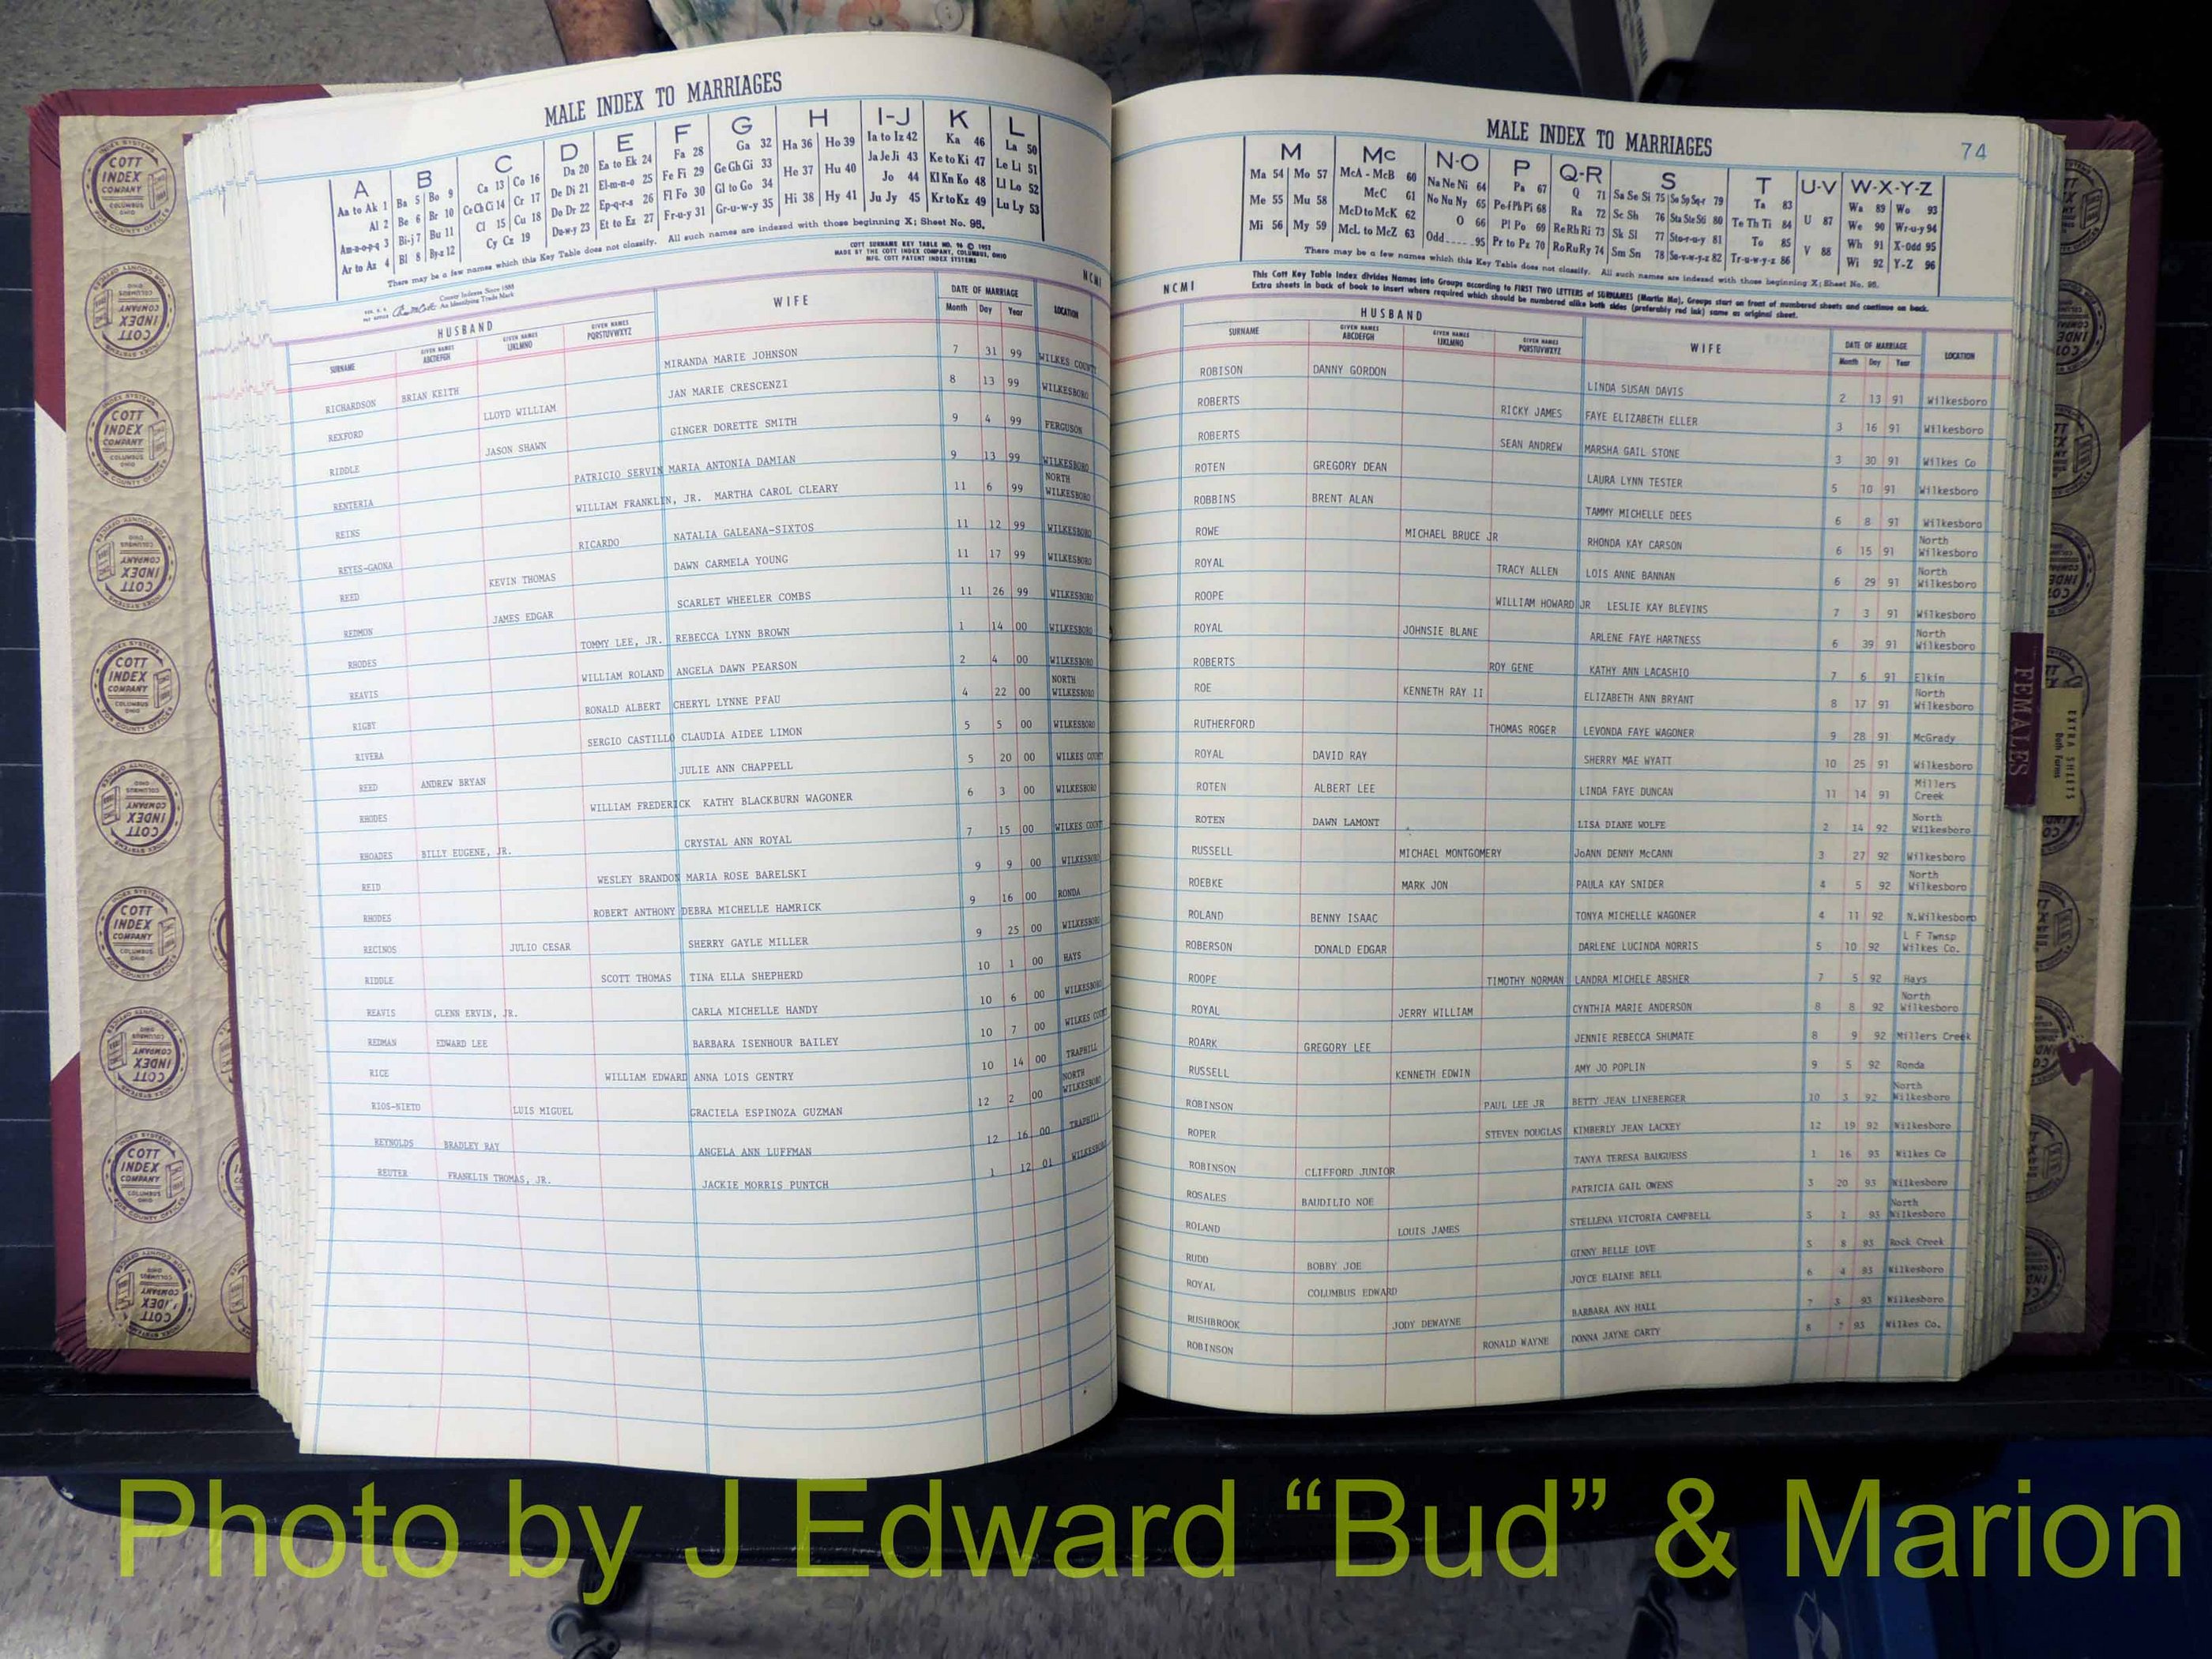 MALE INDEX TO MARRIAGES
A B C D E F G H I-J K L
Aa to Ak 1 Ba 5 Bo 9 Ca 13 Co 16 Da 20 Ea to Ek 24 Fa 28 Ga 32 Ha 36 Ho 39 Ia to Iz 42 Ka 46 La 50
Al 2 Be 6 Br 10 Ce Ch Ci 14 Cr 17 De Di 21 El-m-n-o 25 Fe Fi 29 Ge Gh Gi 33 He 37 Hu 40 Ja Je Ji 43 Ke to Ki 47 Le Li 51
Am-n-o-p-q 3 Bi-j 7 Bu 11 Cl 15 Cu 18 Do Dr 22 Ep-q-r-s 26 Fl Fo 30 Gl to Go 34 Hi 38 Hy 41 Jo 44 Kl Kn Ko 48 Ll Lo 52
Ar to Az 4 Bl 8 By-z 12 Cy Cz 19 Du-w-y 23 Et to Ez 27 Fr-u-y 31 Gr-u-w-y 35 Ju Jy 45 Kr to Kz 49 Lu Ly 53
There may be a few names which this Key Table does not classify. All such names are indexed with those beginning X; Sheet No. 95.
COTT SURNAME KEY TABLE NO. 96 © 1952
MADE BY THE COTT INDEX COMPANY, COLUMBUS, OHIO
MFG. COTT PATENT INDEX SYSTEMS
County Indexes Since 1888
An Identifying Trade Mark
NCMI
HUSBAND WIFE DATE OF MARRIAGE LOCATION
SURNAME GIVEN NAMES ABCDEFGH GIVEN NAMES IJKLMNO GIVEN NAMES PQRSTUVWXYZ Month Day Year
RICHARDSON BRIAN KEITH MIRANDA MARIE JOHNSON 7 31 99 WILKES COUNTY
REXFORD LLOYD WILLIAM JAN MARIE CRESCENZI 8 13 99 WILKESBORO
RIDDLE JASON SHAWN GINGER DORETTE SMITH 9 4 99 FERGUSON
RENTERIA PATRICIO SERVIN MARIA ANTONIA DAMIAN 9 13 99 WILKESBORO
REINS WILLIAM FRANKLIN, JR. MARTHA CAROL CLEARY 11 6 99 NORTH WILKESBORO
REYES-GAONA RICARDO NATALIA GALEANA-SIXTOS 11 12 99 WILKESBORO
REED KEVIN THOMAS DAWN CARMELA YOUNG 11 17 99 WILKESBORO
REDMON JAMES EDGAR SCARLET WHEELER COMBS 11 26 99 WILKESBORO
RHODES TOMMY LEE, JR. REBECCA LYNN BROWN 1 14 00 WILKESBORO
REAVIS WILLIAM ROLAND ANGELA DAWN PEARSON 2 4 00 WILKESBORO
RIGBY RONALD ALBERT CHERYL LYNNE PFAU 4 22 00 NORTH WILKESBORO
RIVERA SERGIO CASTILLO CLAUDIA AIDEE LIMON 5 5 00 WILKESBORO
REED ANDREW BRYAN JULIE ANN CHAPPELL 5 20 00 WILKES COUNTY
RHODES WILLIAM FREDERICK KATHY BLACKBURN WAGONER 6 3 00 WILKESBORO
RHOADES BILLY EUGENE, JR. CRYSTAL ANN ROYAL 7 15 00 WILKES COUNTY
REID WESLEY BRANDON MARIA ROSE BARELSKI 9 9 00 WILKESBORO
RHODES ROBERT ANTHONY DEBRA MICHELLE HAMRICK 9 16 00 RONDA
RECINOS JULIO CESAR SHERRY GAYLE MILLER 9 25 00 WILKESBORO
RIDDLE SCOTT THOMAS TINA ELLA SHEPHERD 10 1 00 HAYS
REAVIS GLENN ERVIN, JR. CARLA MICHELLE HANDY 10 6 00 WILKESBORO
REDMAN EDWARD LEE BARBARA ISENHOUR BAILEY 10 7 00 WILKES COUNTY
RICE WILLIAM EDWARD ANNA LOIS GENTRY 10 14 00 TRAPHILL
RIOS-NIETO LUIS MIGUEL GRACIELA ESPINOZA GUZMAN 12 2 00 NORTH WILKESBORO
REYNOLDS BRADLEY RAY ANGELA ANN LUFFMAN 12 16 00 TRAPHILL
REUTER FRANKLIN THOMAS, JR. JACKIE MORRIS PUNTCH 1 12 01 WILKESBORO
MALE INDEX TO MARRIAGES 74
M Mc N-O P Q-R S T U-V W-X-Y-Z
Ma 54 Mo 57 McA - McB 60 Na Ne Ni 64 Pa 67 Q 71 Sa Se Si 75 So Sp Sq-r 79 Ta 83 Wa 89 Wo 93
Me 55 Mu 58 McC 61 No Nu Ny 65 Pe-f Ph Pi 68 Ra 72 Sc Sh 76 Sta Ste Sti 80 Te Th Ti 84 U 87 We 90 Wr-u-y 94
Mi 56 My 59 McD to McK 62 O 66 Pl Po 69 Re Rh Ri 73 Sk Sl 77 Sto-r-u-y 81 To 85 Wh 91 X-Odd 95
McL to McZ 63 Odd 95 Pr to Pz 70 Ro Ru Ry 74 Sm Sn 78 Su-v-w-y-z 82 Tr-u-w-y-z 86 V 88 Wi 92 Y-Z 96
There may be a few names which this Key Table does not classify. All such names are indexed with those beginning X; Sheet No. 95.
NCMI
This Cott Key Table Index divides Names into Groups according to FIRST TWO LETTERS of SURNAMES (Martin Ma), Groups start on front of numbered sheets and continue on back.
Extra sheets in back of book to insert where required which should be numbered alike both sides (preferably red ink) same as original sheet.
HUSBAND WIFE DATE OF MARRIAGE LOCATION
SURNAME GIVEN NAMES ABCDEFGH GIVEN NAMES IJKLMNO GIVEN NAMES PQRSTUVWXYZ Month Day Year
ROBISON DANNY GORDON LINDA SUSAN DAVIS 2 13 91 Wilkesboro
ROBERTS RICKY JAMES FAYE ELIZABETH ELLER 3 16 91 Wilkesboro
ROBERTS SEAN ANDREW MARSHA GAIL STONE 3 30 91 Wilkes Co
ROTEN GREGORY DEAN LAURA LYNN TESTER 5 10 91 Wilkesboro
ROBBINS BRENT ALAN TAMMY MICHELLE DEES 6 8 91 Wilkesboro
ROWE MICHAEL BRUCE JR RHONDA KAY CARSON 6 15 91 North Wilkesboro
ROYAL TRACY ALLEN LOIS ANNE BANNAN 6 29 91 North Wilkesboro
ROOPE WILLIAM HOWARD JR LESLIE KAY BLEVINS 7 3 91 Wilkesboro
ROYAL JOHNSIE BLANE ARLENE FAYE HARTNESS 6 39 91 North Wilkesboro
ROBERTS ROY GENE KATHY ANN LACASHIO 7 6 91 Elkin
ROE KENNETH RAY II ELIZABETH ANN BRYANT 8 17 91 North Wilkesboro
RUTHERFORD THOMAS ROGER LEVONDA FAYE WAGONER 9 28 91 McGrady
ROYAL DAVID RAY SHERRY MAE WYATT 10 25 91 Wilkesboro
ROTEN ALBERT LEE LINDA FAYE DUNCAN 11 14 91 Millers Creek
ROTEN DAWN LAMONT LISA DIANE WOLFE 2 14 92 North Wilkesboro
RUSSELL MICHAEL MONTGOMERY JoANN DENNY McCANN 3 27 92 Wilkesboro
ROEBKE MARK JON PAULA KAY SNIDER 4 5 92 North Wilkesboro
ROLAND BENNY ISAAC TONYA MICHELLE WAGONER 4 11 92 N.Wilkesboro
ROBERSON DONALD EDGAR DARLENE LUCINDA NORRIS 5 10 92 L F Twnsp Wilkes Co.
ROOPE TIMOTHY NORMAN LANDRA MICHELE ABSHER 7 5 92 Hays
ROYAL JERRY WILLIAM CYNTHIA MARIE ANDERSON 8 8 92 North Wilkesboro
ROARK GREGORY LEE JENNIE REBECCA SHUMATE 8 9 92 Millers Creek
RUSSELL KENNETH EDWIN AMY JO POPLIN 9 5 92 Ronda
ROBINSON PAUL LEE JR BETTY JEAN LINEBERGER 10 3 92 North Wilkesboro
ROPER STEVEN DOUGLAS KIMBERLY JEAN LACKEY 12 19 92 Wilkesboro
ROBINSON CLIFFORD JUNIOR TANYA TERESA BAUGUESS 1 16 93 Wilkes Co
ROSALES BAUDILIO NOE PATRICIA GAIL OWENS 3 20 93 Wilkesboro
ROLAND LOUIS JAMES STELLENA VICTORIA CAMPBELL 5 1 93 North Wilkesboro
RUDD BOBBY JOE GINNY BELLE LOVE 5 8 93 Rock Creek
ROYAL COLUMBUS EDWARD JOYCE ELAINE BELL 6 4 93 Wilkesboro
RUSHBROOK JODY DEWAYNE BARBARA ANN HALL 7 3 93 Wilkesboro
ROBINSON RONALD WAYNE DONNA JAYNE CARTY 8 7 93 Wilkes Co.
FEMALES
EXTRA SHEETS
Both Forms
COTT INDEX COMPANY
COLUMBUS OHIO
FOR COUNTY OFFICES
Photo by J Edward “Bud” & Marion